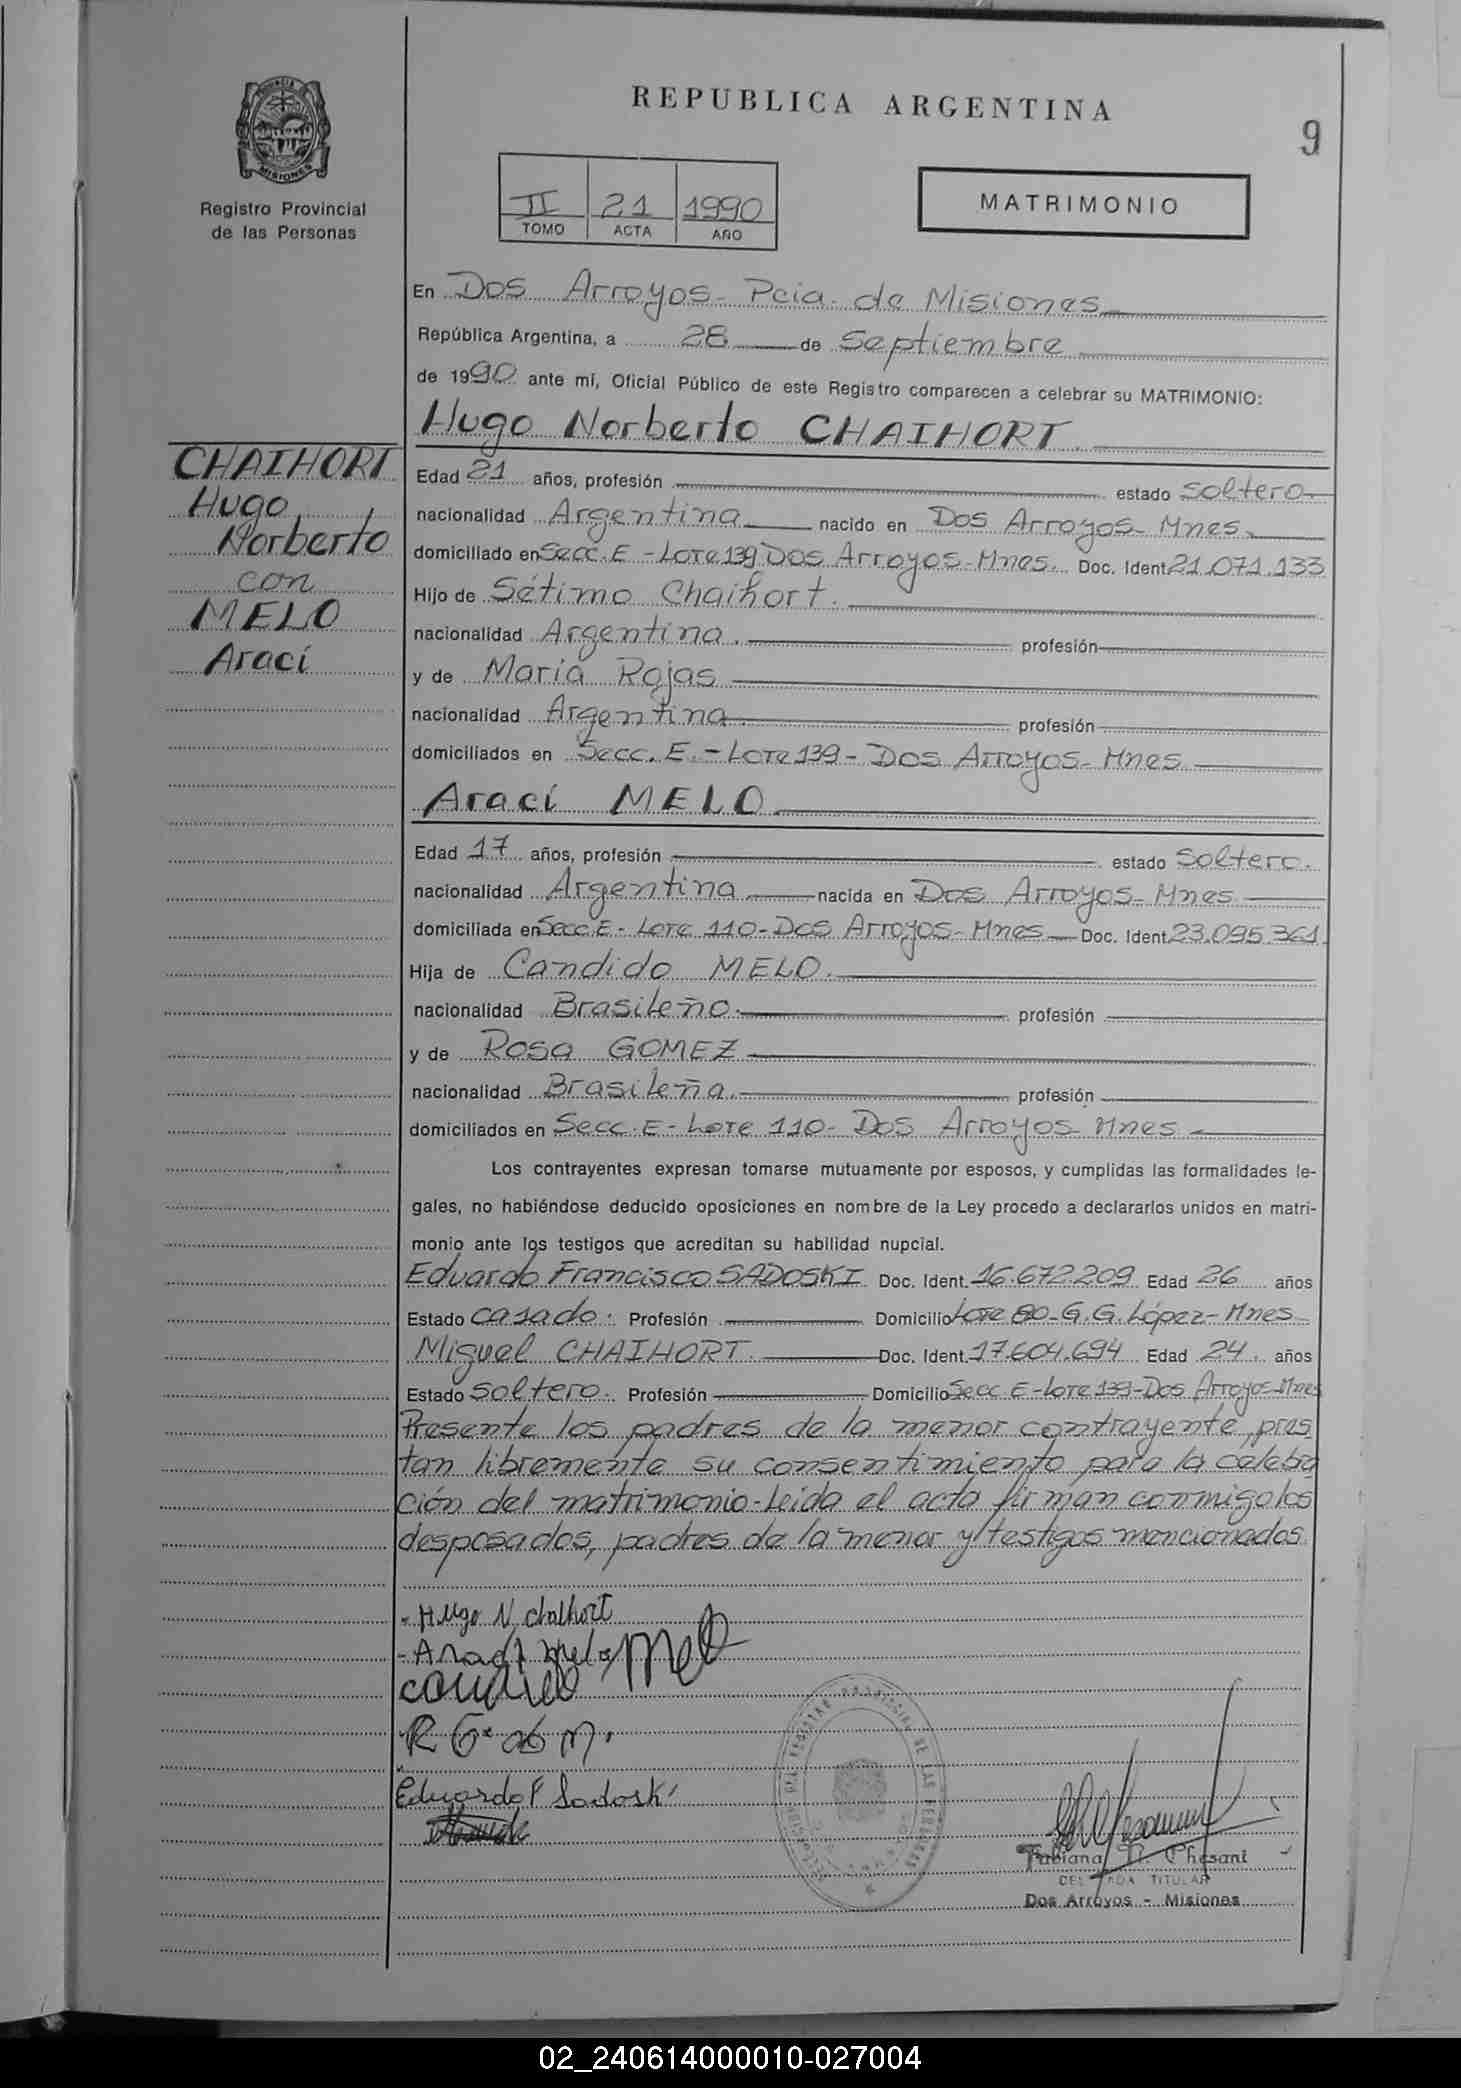 REPUBLICA ARGENTINA
9
PROVINCIA DE MISIONES
Registro Provincial
de las Personas
II 21 1990
TOMO ACTA AÑO
MATRIMONIO
En Dos Arroyos - Pcia. de Misiones
República Argentina, a 28 de Septiembre
de 1990 ante mí, Oficial Público de este Registro comparecen a celebrar su MATRIMONIO:
Hugo Norberto CHAIHORT.
CHAIHORT
Hugo
Norberto
con
MELO
Arací
Edad 21 años, profesión estado soltero
nacionalidad Argentina nacido en Dos Arroyos - Mnes.
domiciliado en Secc. E - Lote 139 Dos Arroyos - Mnes. Doc. Ident. 21.071.133
Hijo de Sétimo Chaihort.
nacionalidad Argentina. profesión
y de María Rojas
nacionalidad Argentina. profesión
domiciliados en Secc. E. - Lote 139 - Dos Arroyos - Mnes
Arací MELO
Edad 17 años, profesión estado soltero.
nacionalidad Argentina nacida en Dos Arroyos - Mnes
domiciliada en Secc. E - Lote 110 - Dos Arroyos - Mnes Doc. Ident. 23.095.361
Hija de Candido MELO.
nacionalidad Brasileño. profesión
y de Rosa GOMEZ
nacionalidad Brasileña. profesión
domiciliados en Secc. E - Lote 110 - Dos Arroyos Mnes
Los contrayentes expresan tomarse mutuamente por esposos, y cumplidas las formalidades le-
gales, no habiéndose deducido oposiciones en nombre de la Ley procedo a declararlos unidos en matri-
monio ante los testigos que acreditan su habilidad nupcial.
Eduardo Francisco SADOSKI Doc. Ident. 16.672.209 Edad 26 años
Estado casado. Profesión Domicilio Lote 80 - G. G. López - Mnes
Miguel CHAIHORT. Doc. Ident. 17.604.694 Edad 24. años
Estado soltero. Profesión Domicilio Secc. E - Lote 139 - Dos Arroyos - Mnes
Presente los padres de la menor contrayente, pres
tan libremente su consentimiento para la celebra
ción del matrimonio - Leida el acta firman conmigo los
desposados, padres de la menor y testigos mencionados
- Hugo N. Chaihort
- Arací Melo
Candido Melo
R G de M.
Eduardo F Sadoski
Fabiana N. Chesani
DELEGADA TITULAR
Dos Arroyos - Misiones
02_240614000010-027004